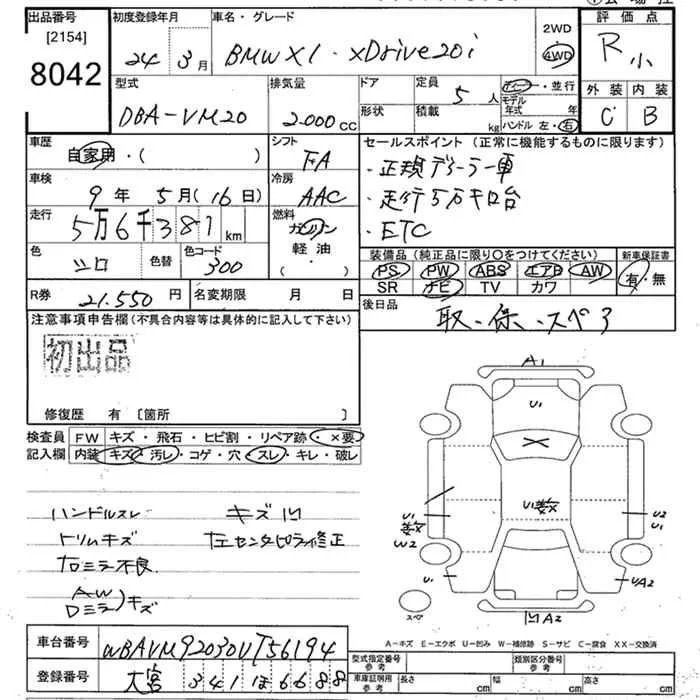 出品番号
[2154]
8042
初度登録年月
24年 3月
車名・グレード
BMW X1・xDrive20i
2WD
4WD
評価点
R 小
外装 内装
C B
型式
DBA-VM20
排気量
2.000cc
ドア
形状
定員
5人
積載
kg
ディーラー・並行
モデル年式 年
ハンドル 左・右
車歴
自家用・( )
シフト
FA
車検
9年 5月(16日)
冷房
AAC
走行
5万6千381km
燃料
ガソリン
軽油
( )
色
シロ
色替
色コード
300
セールスポイント(正常に機能するものに限ります)
・正規ディーラー車
・走行5万キロ台
・ETC
装備品(純正品に限り〇をつけてください)
新車保証書
PS PW ABS エアB AW
SR ナビ TV カワ
有・無
R券 21.550円
名変期限 月 日
後日品
取・保・スペア
注意事項申告欄(不具合内容等は具体的に記入して下さい)
初出品
修復歴 有〔箇所 〕
検査員 FW キズ・飛石・ヒビ割・リペア跡・×要
記入欄 内装 キズ・汚レ・コゲ・穴・スレ・キレ・破レ
ハンドルスレ
トリムキズ
右ミラー不良
AW
Dミラー)キズ
キズ凹
左センタピラー修正
A1
U1
U1
U1
W2
U2
U1
U1
UA2
凹A2
スペア
A-キズ E-エクボ U-凹み W-補修跡 S-サビ C-腐食 XX-交換済
車台番号 WBAVM92030VT56194
登録番号 大宮 341 ほ 6688
型式指定番号
参考
類別区分番号
参考
車庫証明用
参考
長さ cm 幅 cm 高さ cm